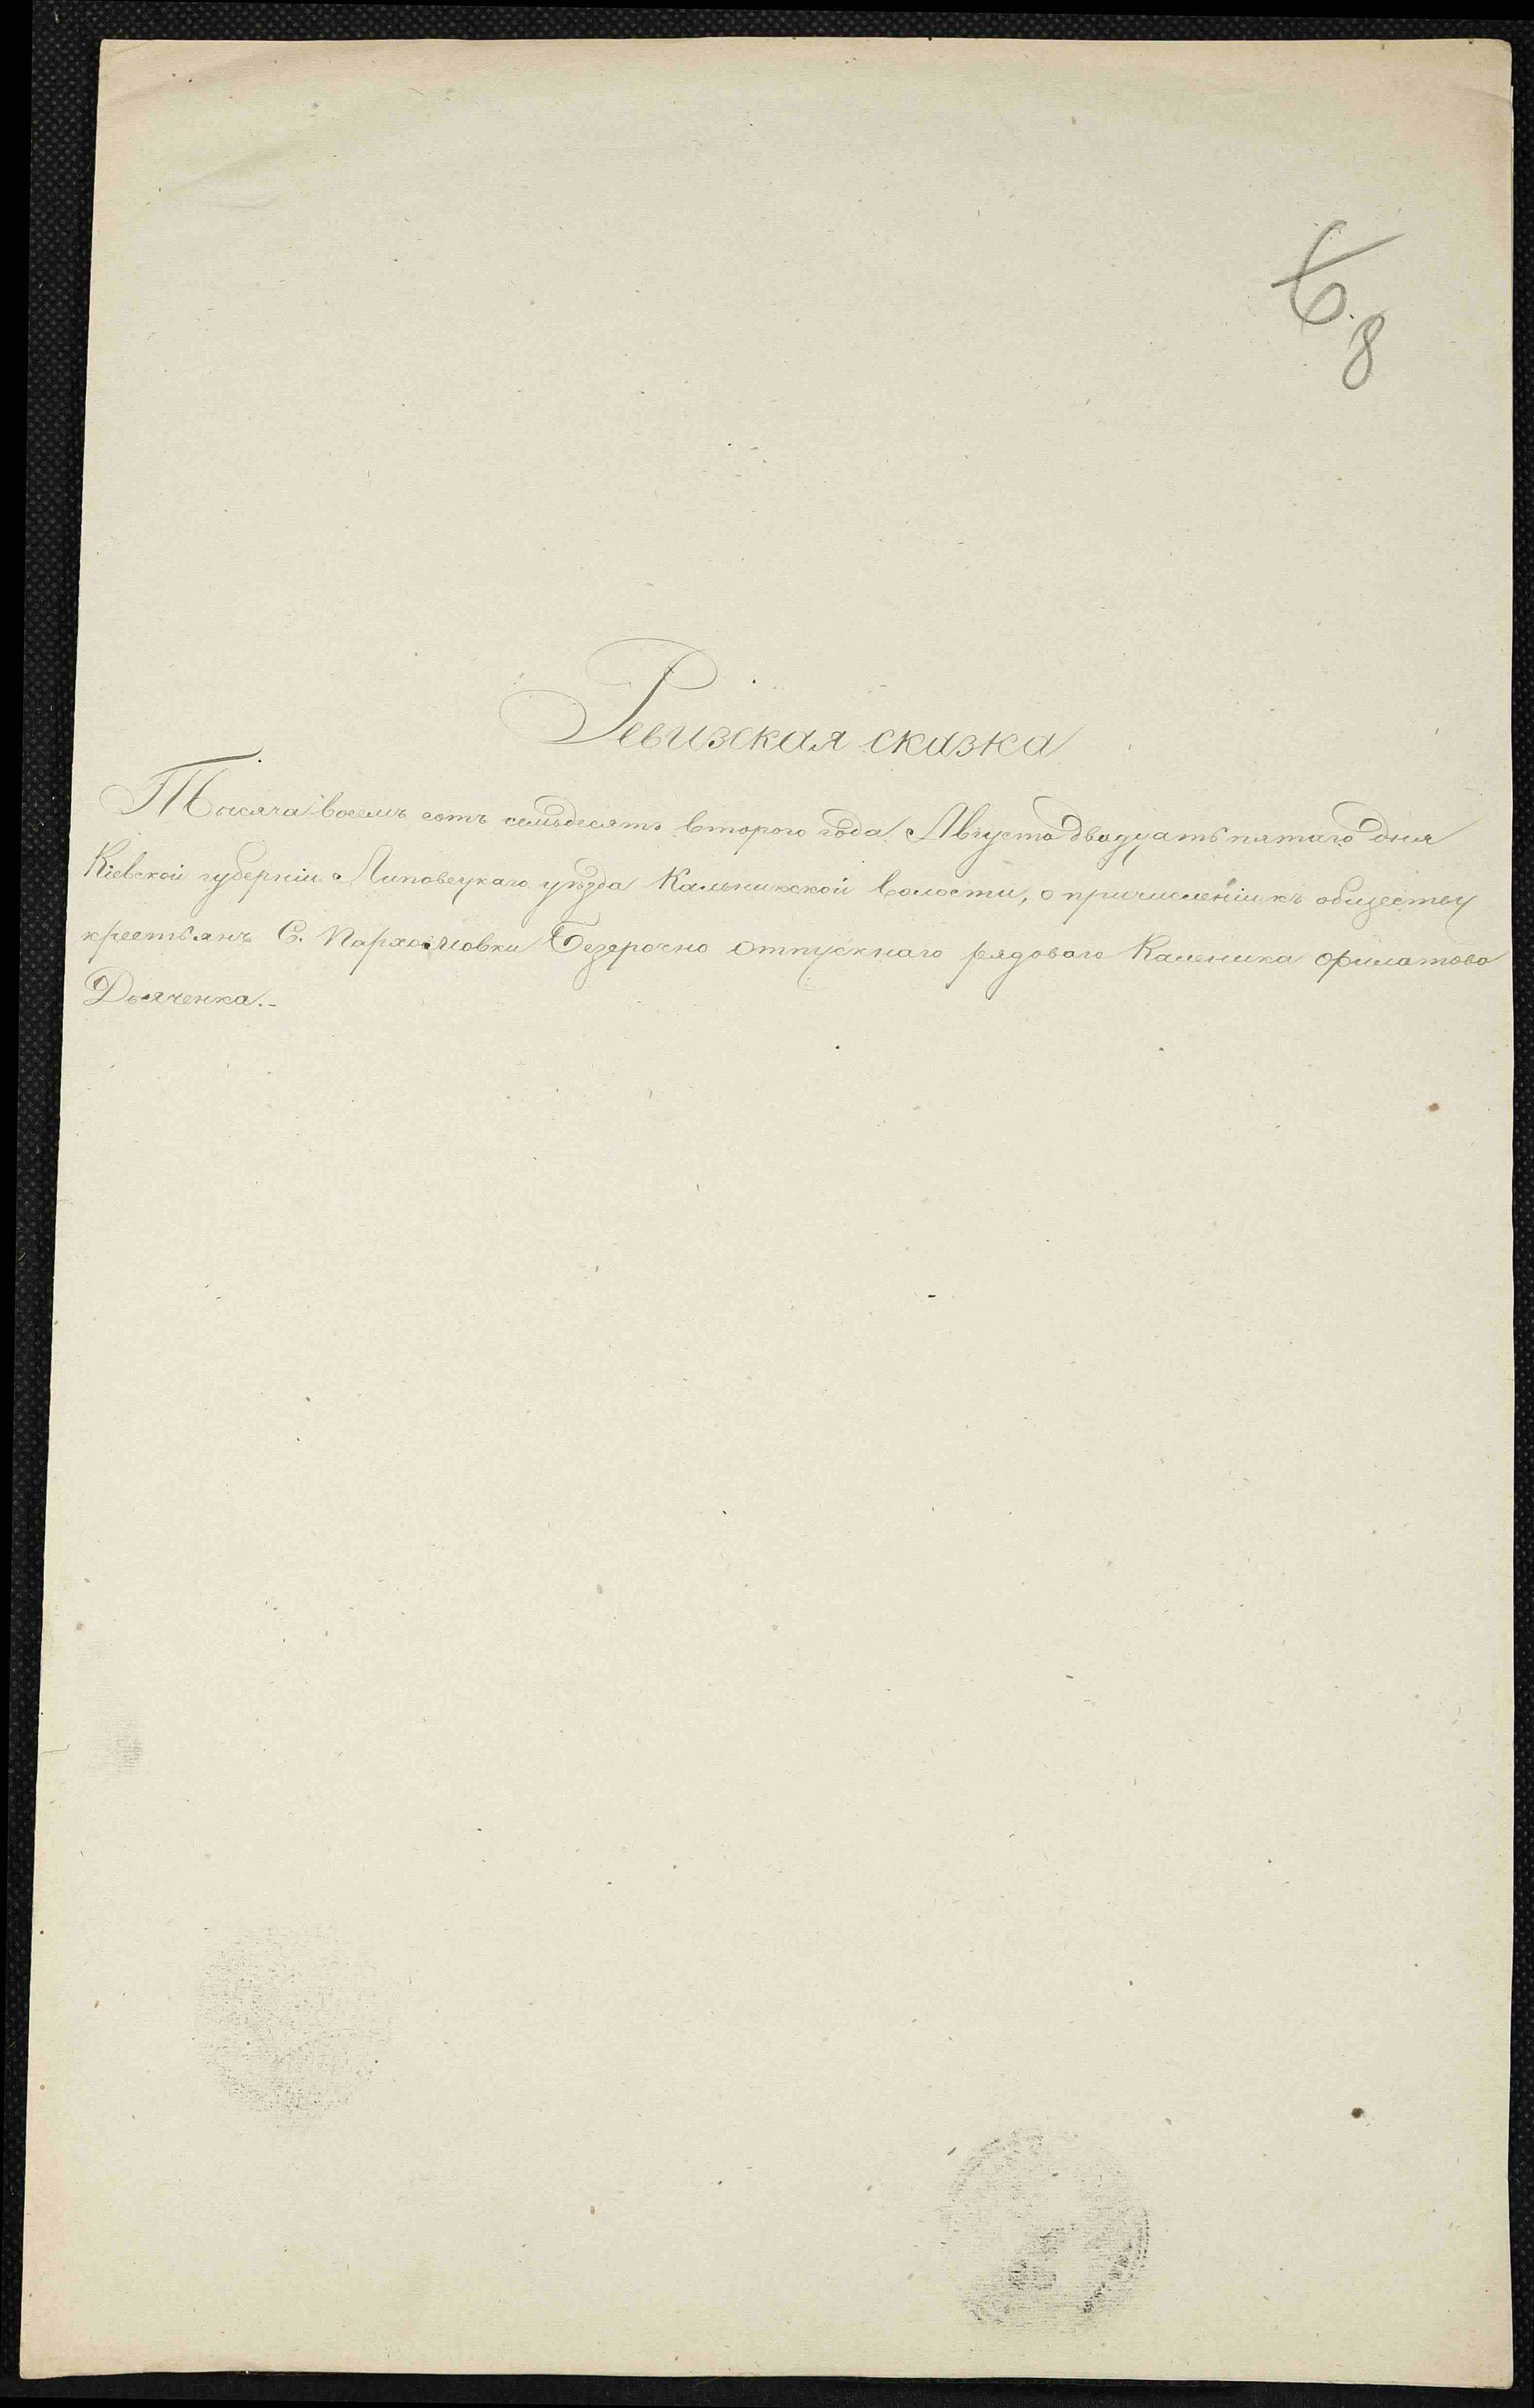 6.
8
Ревизская сказка
Тысяча восемь сотъ семьдесятъ второго года Августа двадцать пятаго дня
Кіевской губерніи Липовецкаго уѣзда Кальникской волости, о причисленіи къ обществу
крестьянъ С. Пархомовки Безсрочно отпускнаго рядового Каленика Филатова
Дьяченка.-